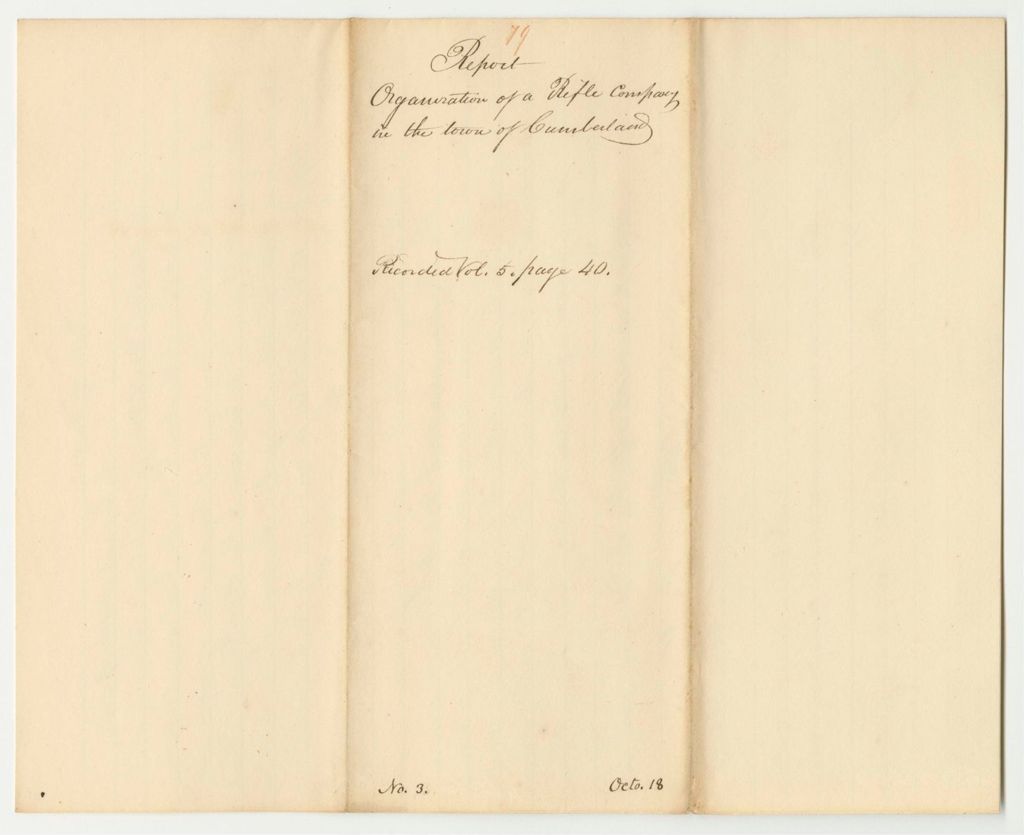 79
Report
Organization of a Rifle Company
in the town of Cumberland
Recorded Vol. 5. page 40.
No. 3. Octo. 18